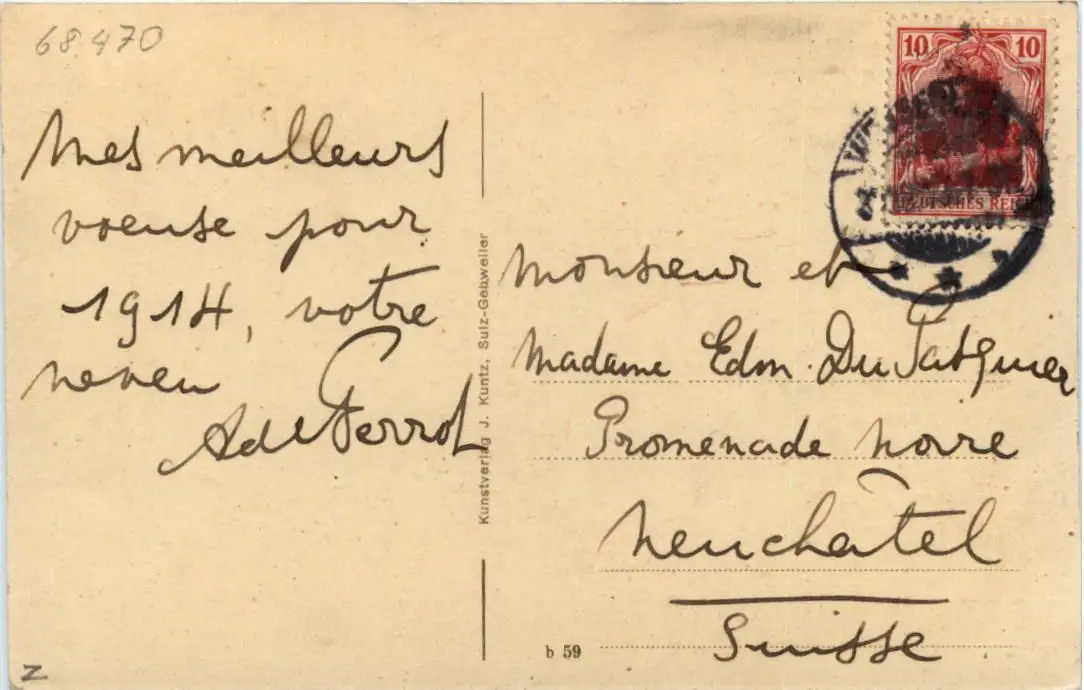 68470
Mes meilleurs
voeux pour
1914, votre
neveu
Ad de Perrot
Kunstverlag J. Kuntz, Sulz-Gebweiler
10 10
DEUTSCHES REICH
Monsieur et
Madame Edm. DuPasquier
Promenade Noire
Neuchâtel
Suisse
b 59
Z